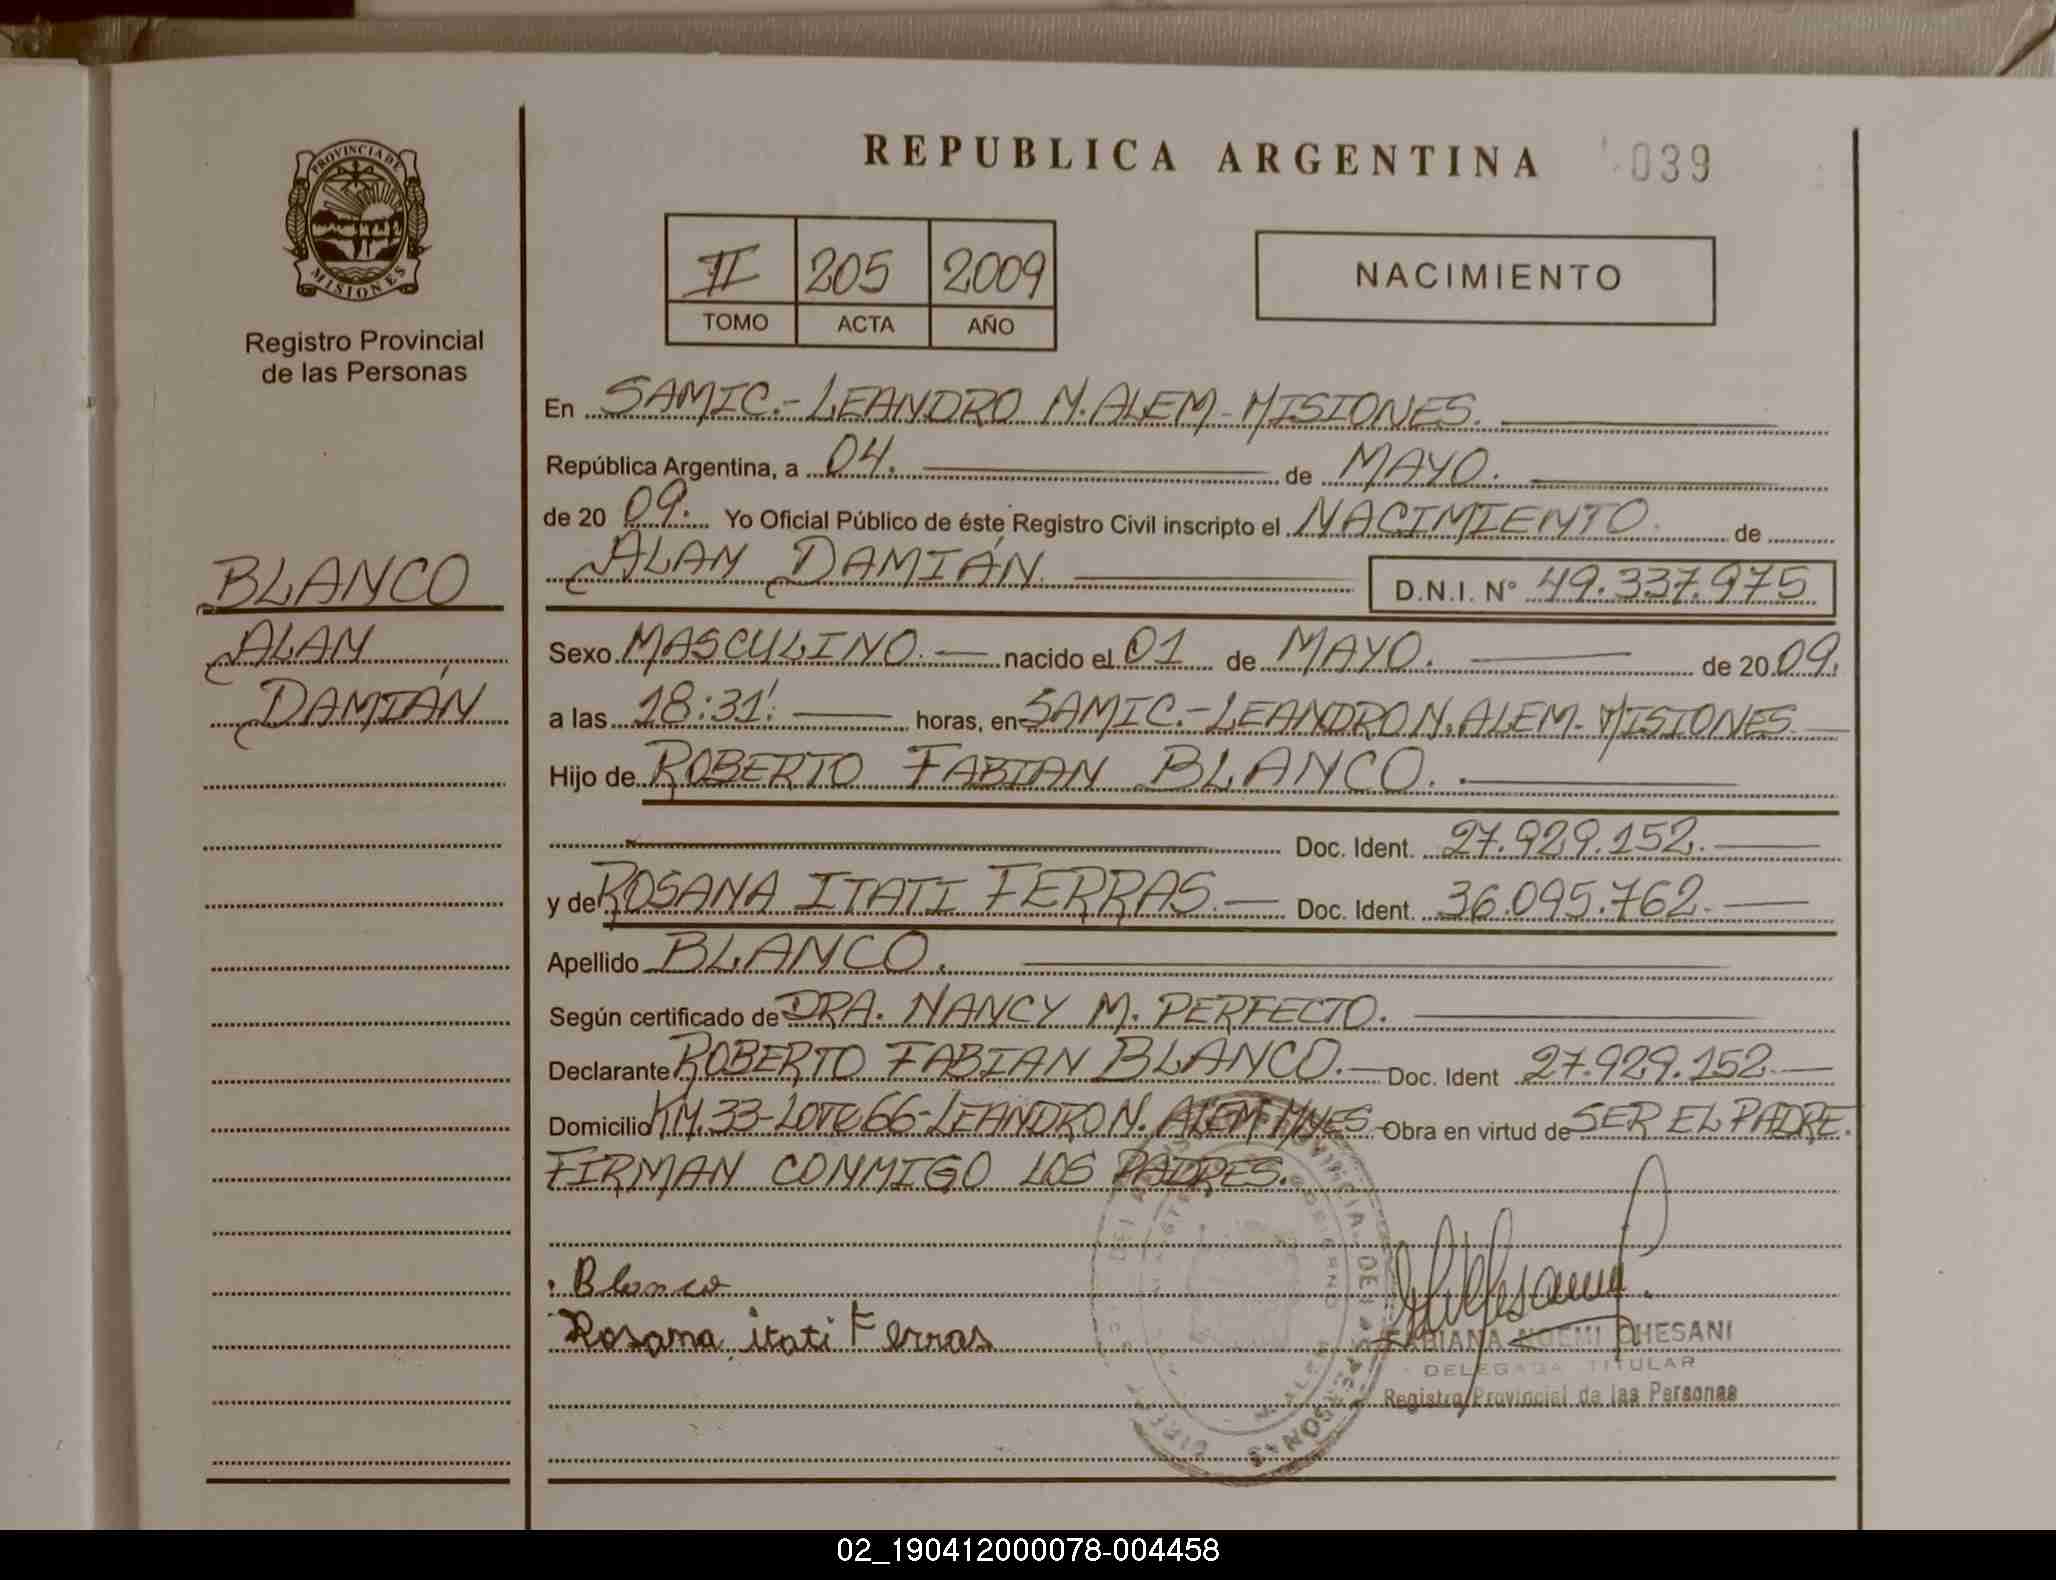 REPUBLICA ARGENTINA 039
PROVINCIA DE
MISIONES
Registro Provincial
de las Personas
II 205 2009
TOMO ACTA AÑO
NACIMIENTO
En SAMIC.- LEANDRO N. ALEM - MISIONES.
República Argentina, a 04. de MAYO.
de 20 09. Yo Oficial Público de éste Registro Civil inscripto el NACIMIENTO. de
ALAN DAMIÁN. D.N.I. N° 49.337.975
BLANCO
ALAN
DAMIÁN
Sexo MASCULINO. nacido el 01 de MAYO. de 20 09.
a las 18:31'. horas, en SAMIC.- LEANDRO N. ALEM - MISIONES
Hijo de ROBERTO FABIAN BLANCO.
Doc. Ident. 27.929.152.
y de ROSANA ITATI FERRAS. Doc. Ident. 36.095.762.
Apellido BLANCO.
Según certificado de DRA. NANCY M. PERFECTO.
Declarante ROBERTO FABIAN BLANCO. Doc. Ident 27.929.152
Domicilio KM. 33 - LOTE 66 - LEANDRO N. ALEM MNES. Obra en virtud de SER EL PADRE.
FIRMAN CONMIGO LOS PADRES.
Blanco
Rosana itati Ferras
FABIANA NOEMI CHESANI
DELEGADA TITULAR
Registro Provincial de las Personas
02_190412000078-004458